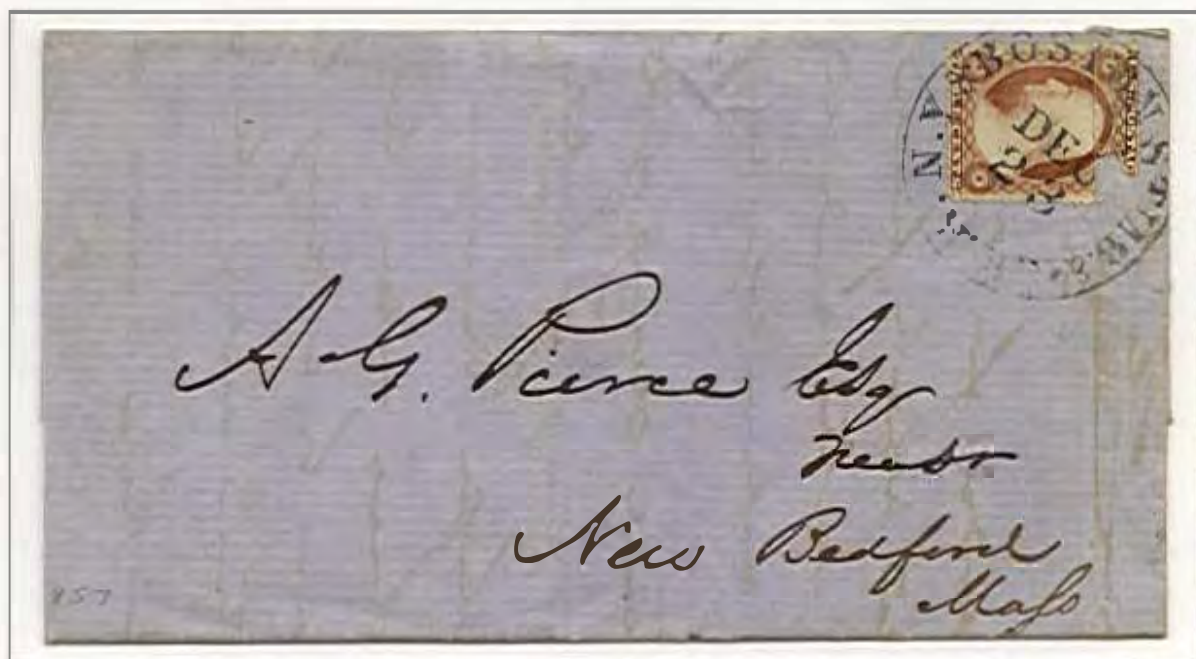 N.Y. & BOSTON STMB. & R.R.
DEC
22
A G. Pierce Esq
Treasr
New Bedford
Mass
857